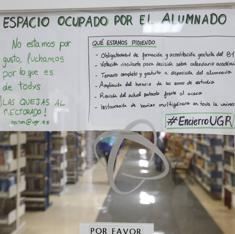 ESPACIO OCUPADO POR EL ALUMNADO
No estamos por
gusto, luchamos
por lo que es
de todxs
LAS QUEJAS AL
RECTORADO!
QUÉ ESTAMOS PIDIENDO
- Obligatoriedad de formación y acreditación gratuita del B1
- Votación vinculante para decidir sobre calendario académico
- Temario completo y gratuito a disposición del alumnado
- Ampliación del horario de las zonas de estudio
- Revisión del actual protocolo frente al acoso
- Instauración de baños multigénero en toda la univer
#EncierroUGR
POR FAVOR